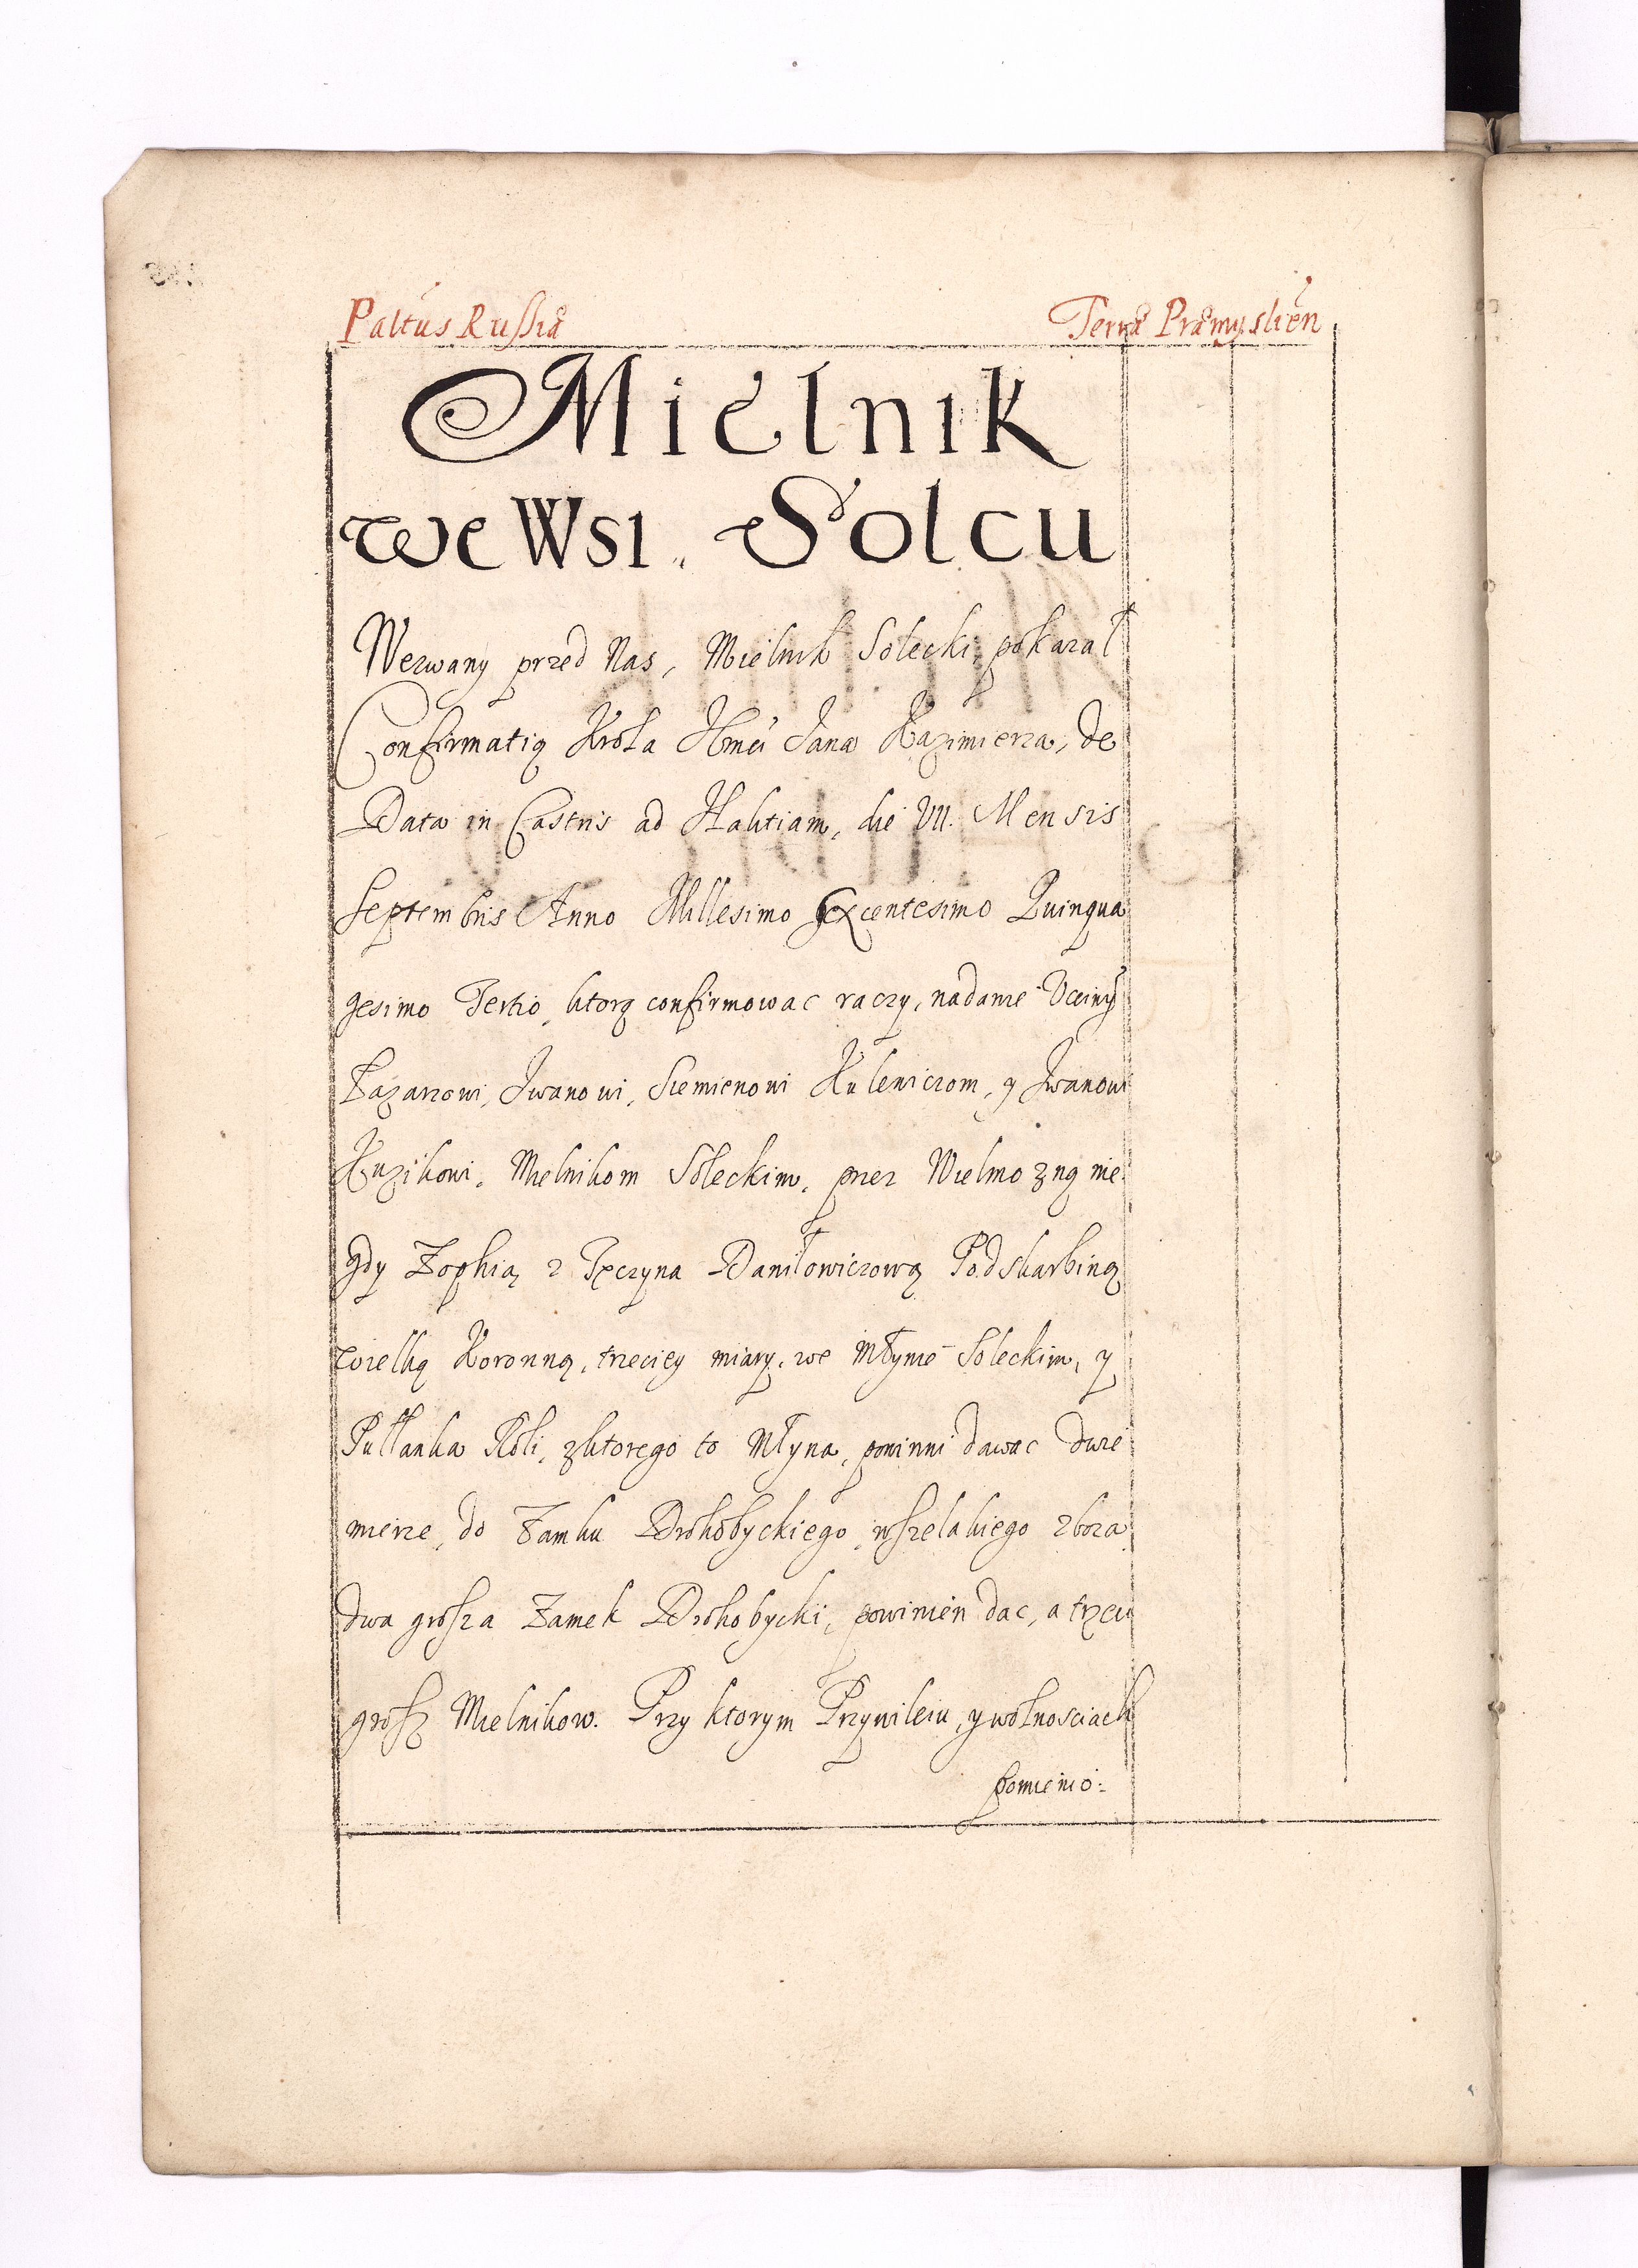 Paltus Russiæ Terræ Præmyslien
Mielnik
we Wsi Solcu
Wezwany przed Nas, Mielnik Solecki, pokazał
Confirmatią Krola Jmći Jana Kazimierza, de
Data in Castris ad Halitiam, die VII. Mensis
Septembris Anno Millesimo Sexcentesimo Quinqua
gesimo Tertio, ktorą confirmowac raczy, nadanie
Łazarzowi, Iwanowi, Siemienowi Kulewiczom, y Iwanowi
Kuzikowi, Mielnikom Soleckim, przez Wielmozną nie:
gdy Zophią z Tęczyna Daniłowiczową Podskarbiną
wielką Koronną, trzeciey miary, we Młynie Soleckim, y
Pułłanka Roli, zktorego to Młyna, powinni dawac dwie
mierze, do Zamku Drohobyckiego, wszelakiego zboza
dwa grosza Zamek Drohobycki, powinien dac, a trzeci
grosz Mielnikow. Przy ktorym Przywileiu, y wolnosciach
pomienio: